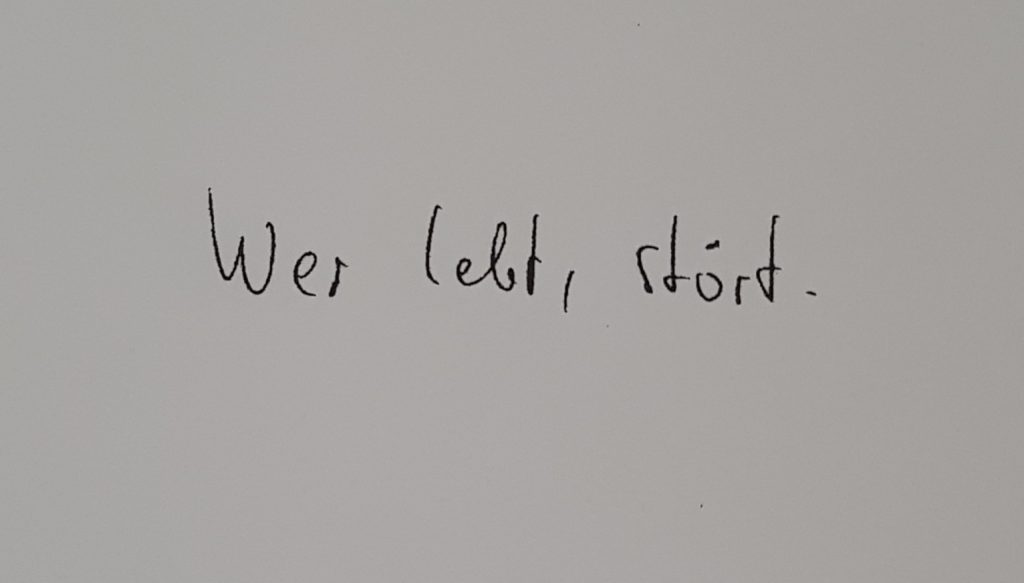 Wer lebt, stört.